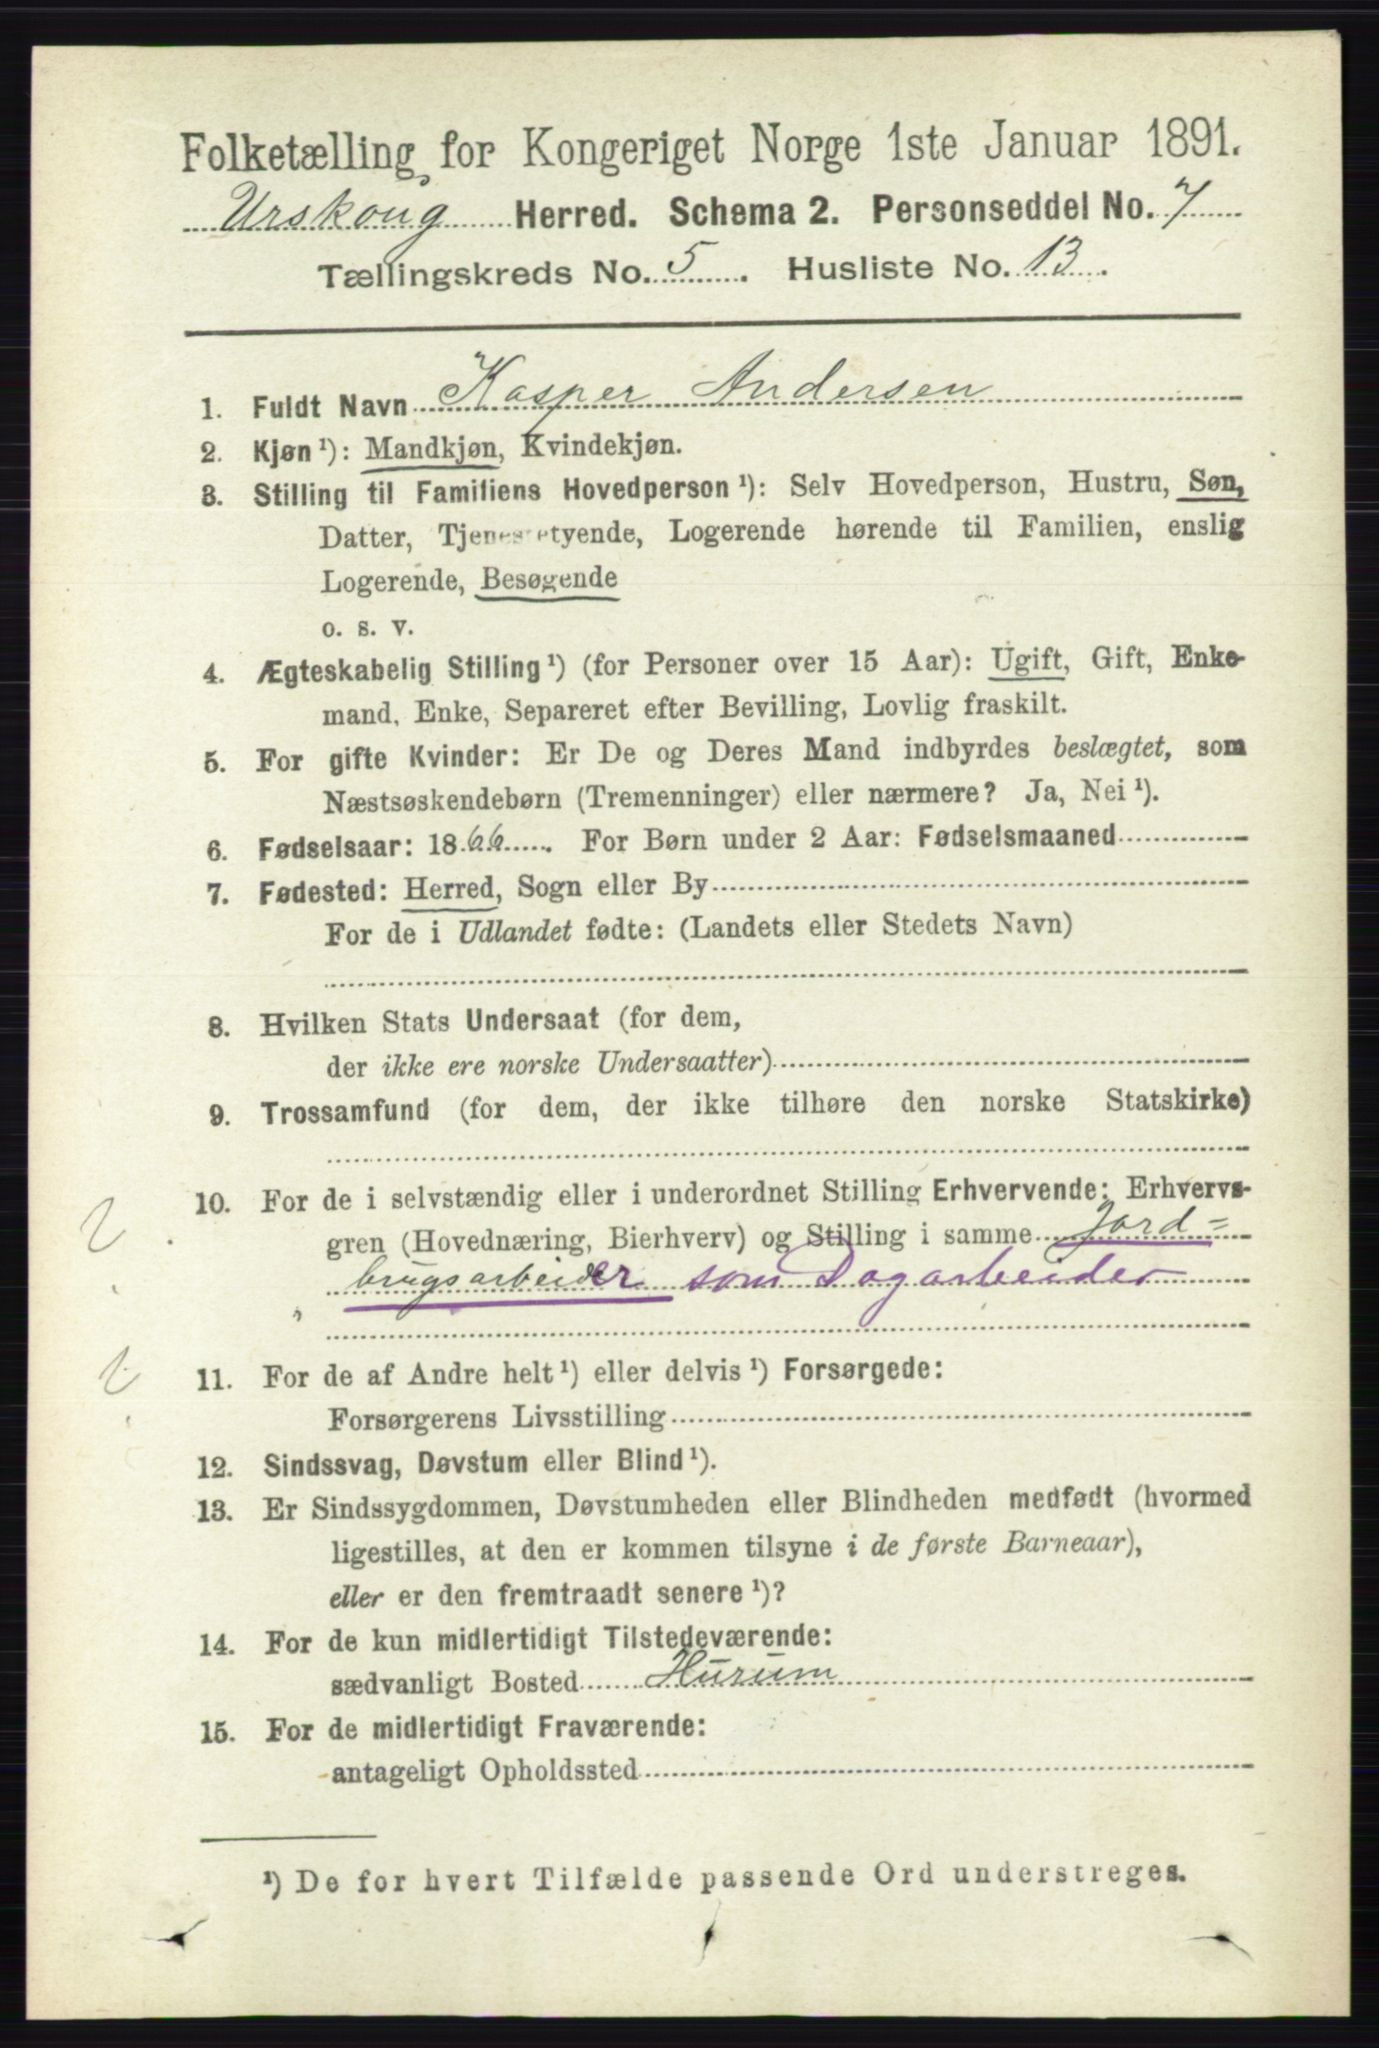 Folketælling for Kongeriget Norge 1ste Januar 1891.
Urskoug Herred. Schema 2. Personseddel No. 7
Tællingskreds No. 5. Husliste No. 13.
1. Fuldt Navn Kasper Andersen
2. Kjøn ¹): Mandkjøn, Kvindekjøn.
3. Stilling til Familiens Hovedperson ¹): Selv Hovedperson, Hustru, Søn,
Datter, Tjenestetyende, Logerende hørende til Familien, enslig
Logerende, Besøgende
o. s. v.
4. Ægteskabelig Stilling ¹) (for Personer over 15 Aar): Ugift, Gift, Enke-
mand, Enke, Separeret efter Bevilling, Lovlig fraskilt.
5. For gifte Kvinder: Er De og Deres Mand indbyrdes beslægtet, som
Næstsøskendebørn (Tremenninger) eller nærmere? Ja, Nei ¹).
6. Fødselsaar: 1866. For Børn under 2 Aar: Fødselsmaaned
7. Fødested: Herred, Sogn eller By
For de i Udlandet fødte: (Landets eller Stedets Navn)
8. Hvilken Stats Undersaat (for dem,
der ikke ere norske Undersaatter)
9. Trossamfund (for dem, der ikke tilhøre den norske Statskirke)
10. For de i selvstændig eller i underordnet Stilling Erhvervende: Erhvervs-
gren (Hovednæring, Bierhverv) og Stilling i samme Jord=
brugsarbeider som Dagarbeider
11. For de af Andre helt ¹) eller delvis ¹) Forsørgede:
Forsørgerens Livsstilling
12. Sindssvag, Døvstum eller Blind ¹).
13. Er Sindssygdommen, Døvstumheden eller Blindheden medfødt (hvormed
ligestilles, at den er kommen tilsyne i de første Barneaar),
eller er den fremtraadt senere ¹)?
14. For de kun midlertidigt Tilstedeværende:
sædvanligt Bosted Hurum
15. For de midlertidigt Fraværende:
antageligt Opholdssted
¹) De for hvert Tilfælde passende Ord understreges.